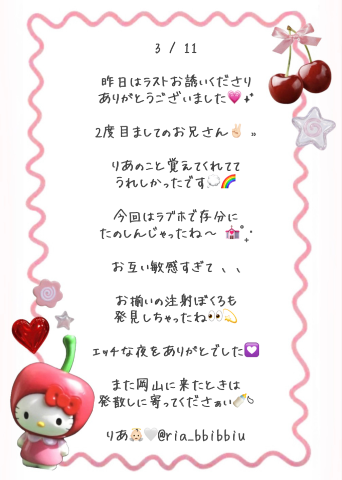 3 / 11
昨日はラストお誘いくださり
ありがとうございました💗✨
2度目ましてのお兄さん✌🏻 »
りあのこと覚えてくれてて
うれしかったです💭🌈
今回はラブホで存分に
たのしんじゃったね〜 🏩
お互い敏感すぎて 、、
お揃いの注射ぼくろも
発見しちゃったね👀💫
ェッチな夜をありがとでした💟
また岡山に来たときは
発散しに寄ってくださぁぃ🍼
りあ👶🏻🤍@ria_bbibbiu